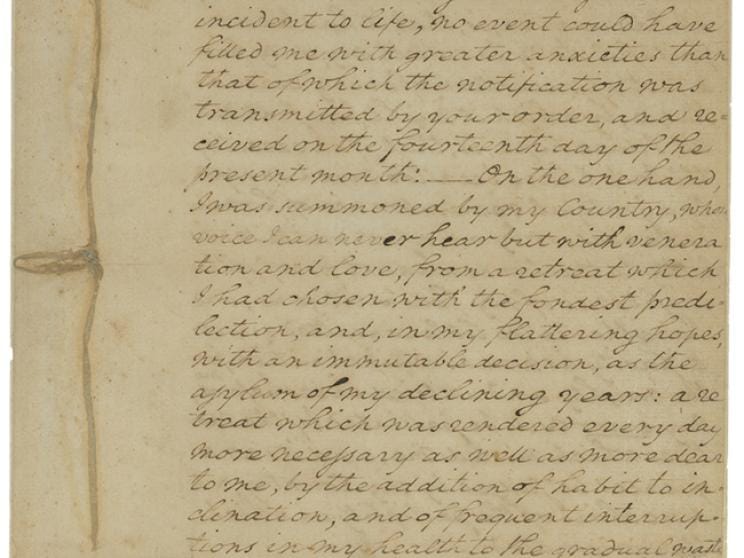 incident to life, no event could have
filled me with greater anxieties than
that of which the notification was
transmitted by your order, and re=
ceived on the fourteenth day of the
present month: — On the one hand,
I was summoned by my Country, whose
voice I can never hear but with venera
tion and love, from a retreat which
I had chosen with the fondest predi-
lection, and, in my flattering hopes,
with an immutable decision, as the
asylum of my declining years: a re
treat which was rendered every day
more necessary as well as more dear
to me, by the addition of habit to in-
clination, and of frequent interrup-
tions in my health to the gradual waste